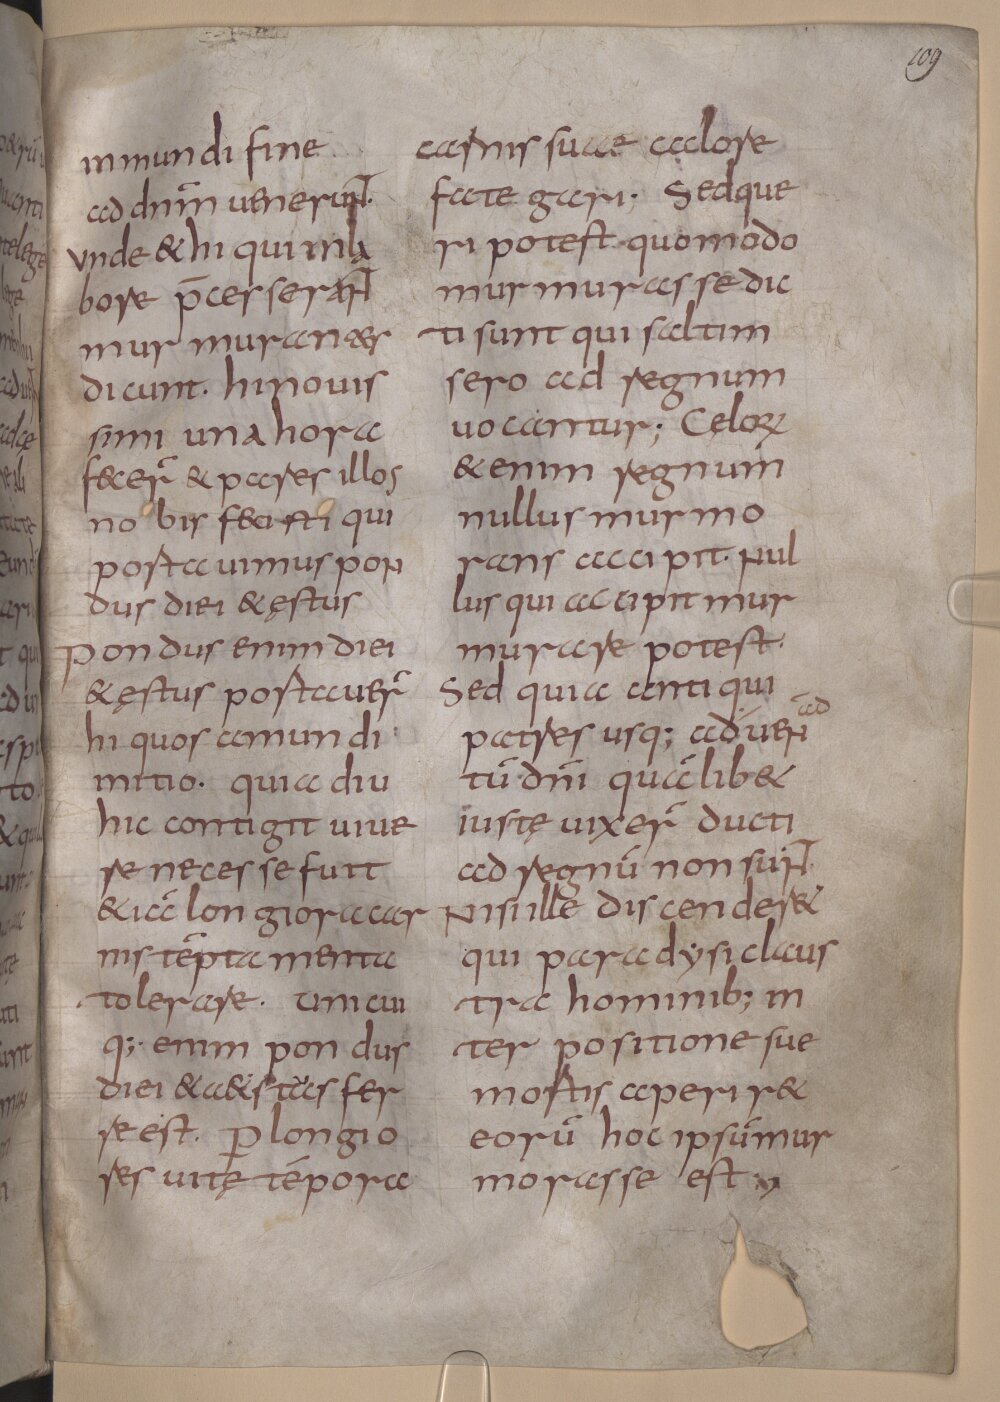 109
in mundi fine
ad dnm̄ uenerunt.
Vnde & hi qui in la
bore p̄cesserant
mur murantes
dicunt. hi nouis
simi una hora
fecer̄ & pares illos
no bis fecisti qui
portauimus pon
dus diei & ęstus
Pondus enim diei
& ęstus portauer̄
hi quos a mundi
initio. quia diu
hic contigit uiue
re necesse fuit
& iā longiora car
nis tēptamenta
tolerare. unicui
q;. enim pondus
diei & aestus fer
re est. p longio
res uitę tēpora
carnis suae calore
fategari; Sed que
ri potest quomodo
murmurasse dic
ti sunt qui saltim
sero ad regnum
uocantur; Cęloꝝ
& enim regnum
nullus murmo
rans accipit. Nul
lus qui accipit mur
murare potest.
Sed quia anti qui
patres usq; ad uen
ad
tū dnī quālib&
iustę uixer̄ ducti
ad regnū non sunt.
Nisi ille discender&
qui paradysi claus
tra hominib; in
ter positione sue
mortis aperir&
eorū hoc ipsū mur
morasse est;